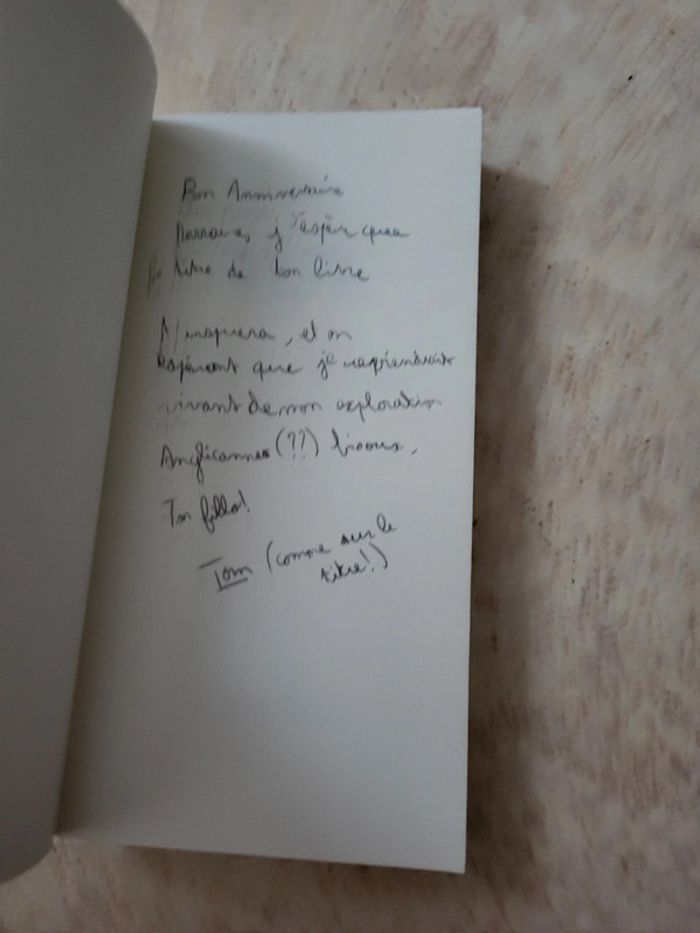 Bon Anniversaire
Marraine, j'espère que
le titre de ton livre
N'inspirera, et en
espérant que je reviendrait
vivant de mon exploration
Anglicannes (??) bisoux,
Ton fillo!
Tom (comme sur le
titre!)